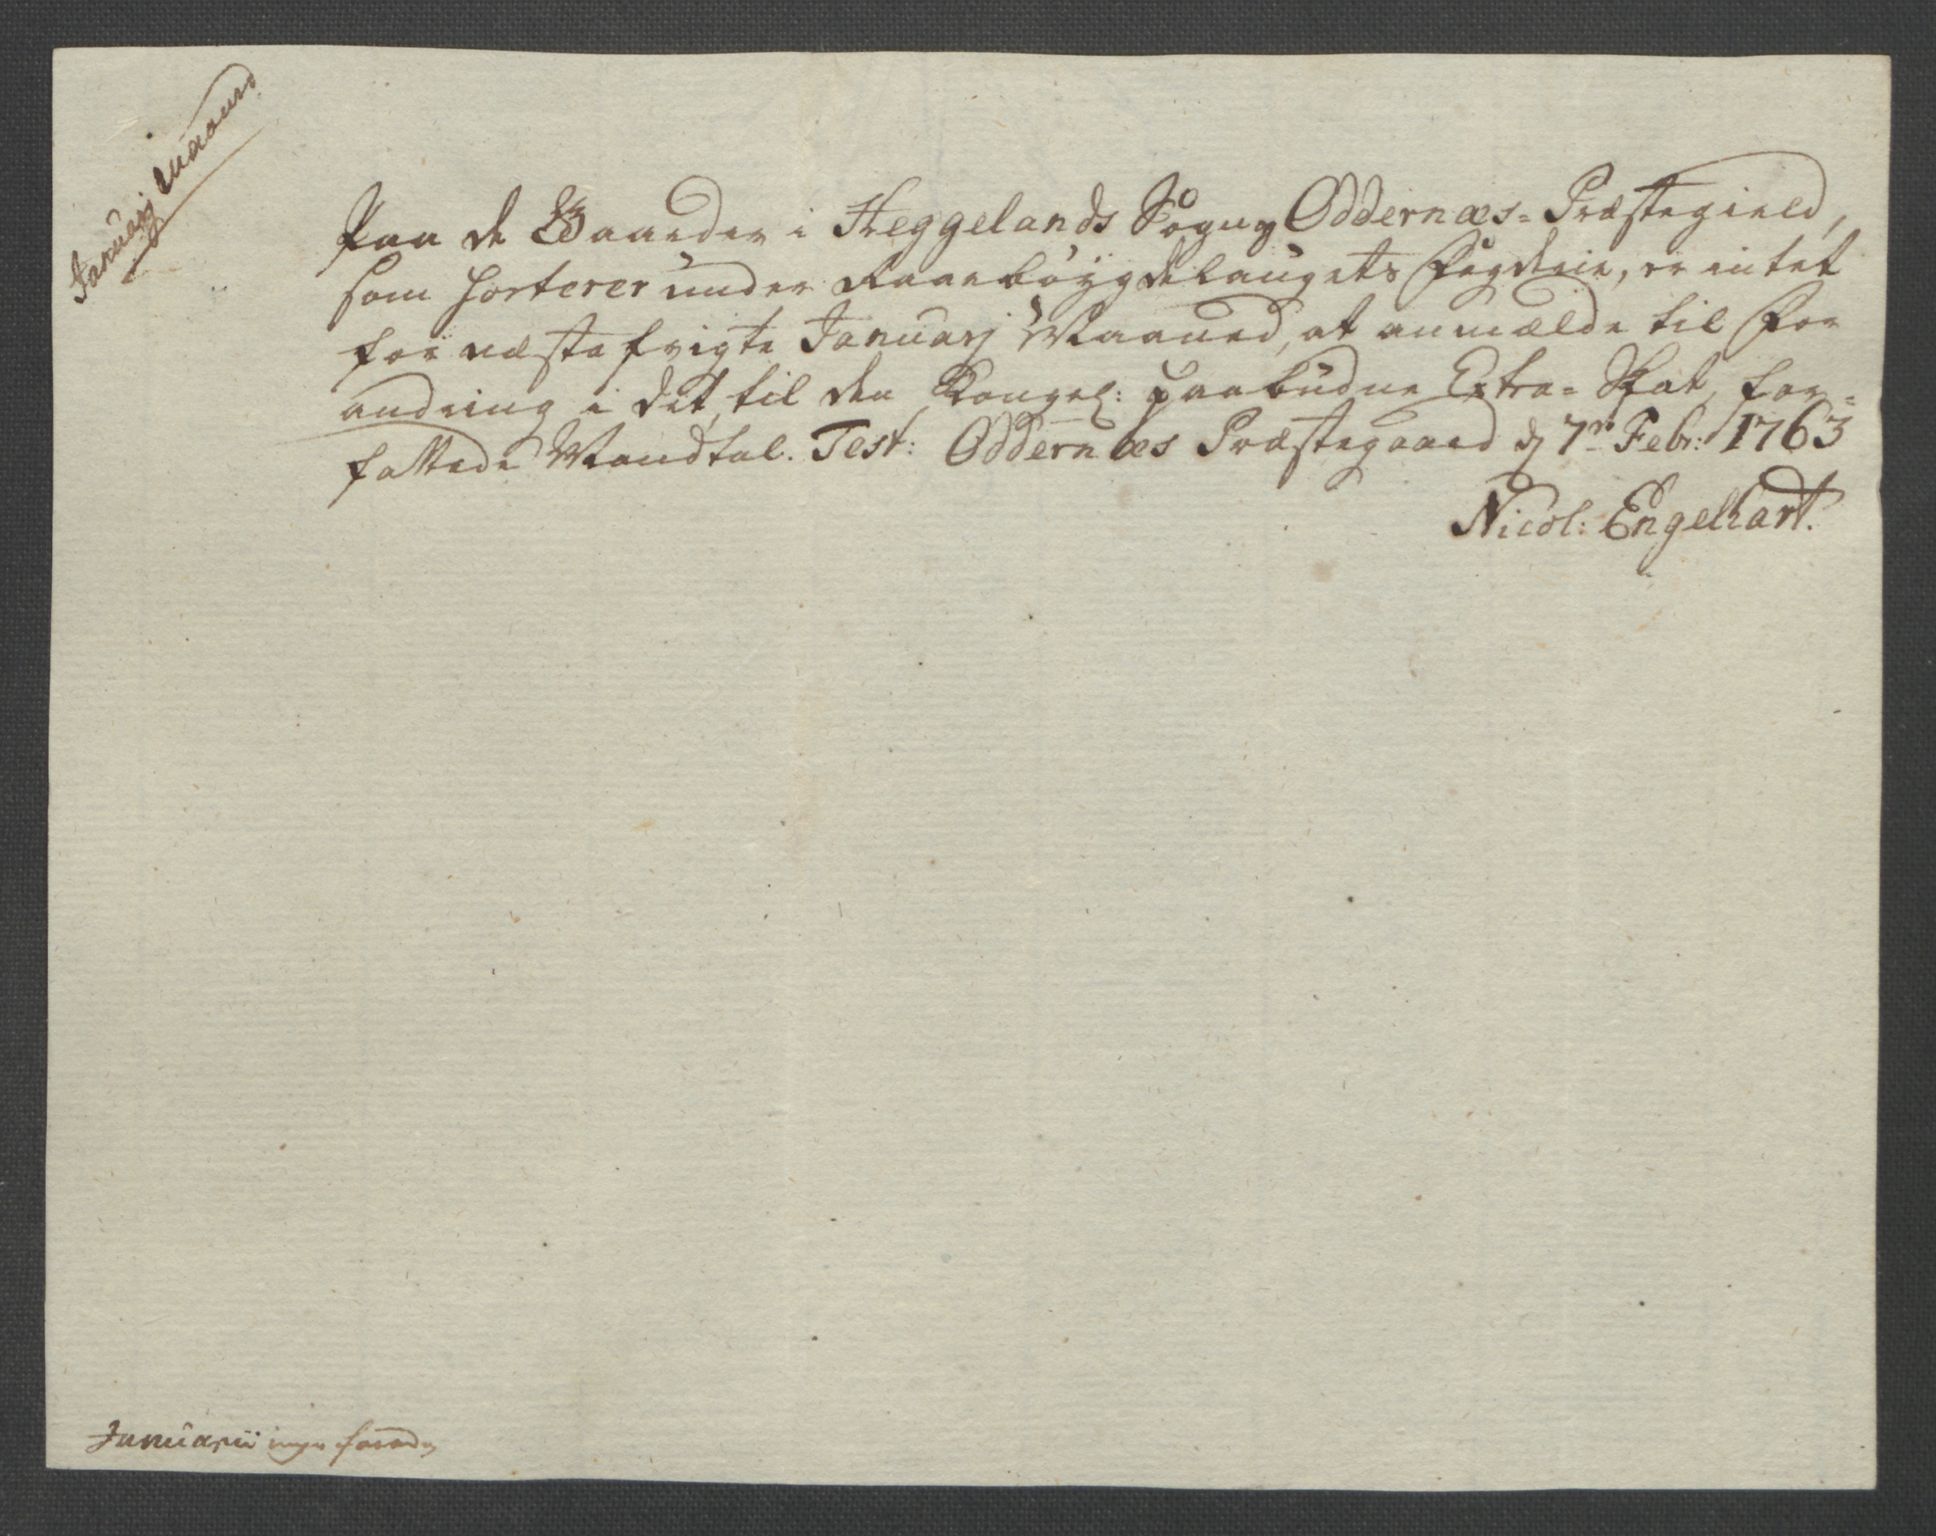 Januarj Maaned
Paa de Gaarder i Heggelands Sogn og Oddernæs- Præstegield,
som sorterer under Raabøygdelaugets Fogderie, er intet
for næstafvigte Januarj Maaned, at anmælde til For
andring i det, til den Kongel: paabudne Extra- Skat, for-
fattede Mandtal. Test: Oddernæs Præstegaard d 7de Febr: 1763
Nicol: Engelhart.
Januarii ingen forandr